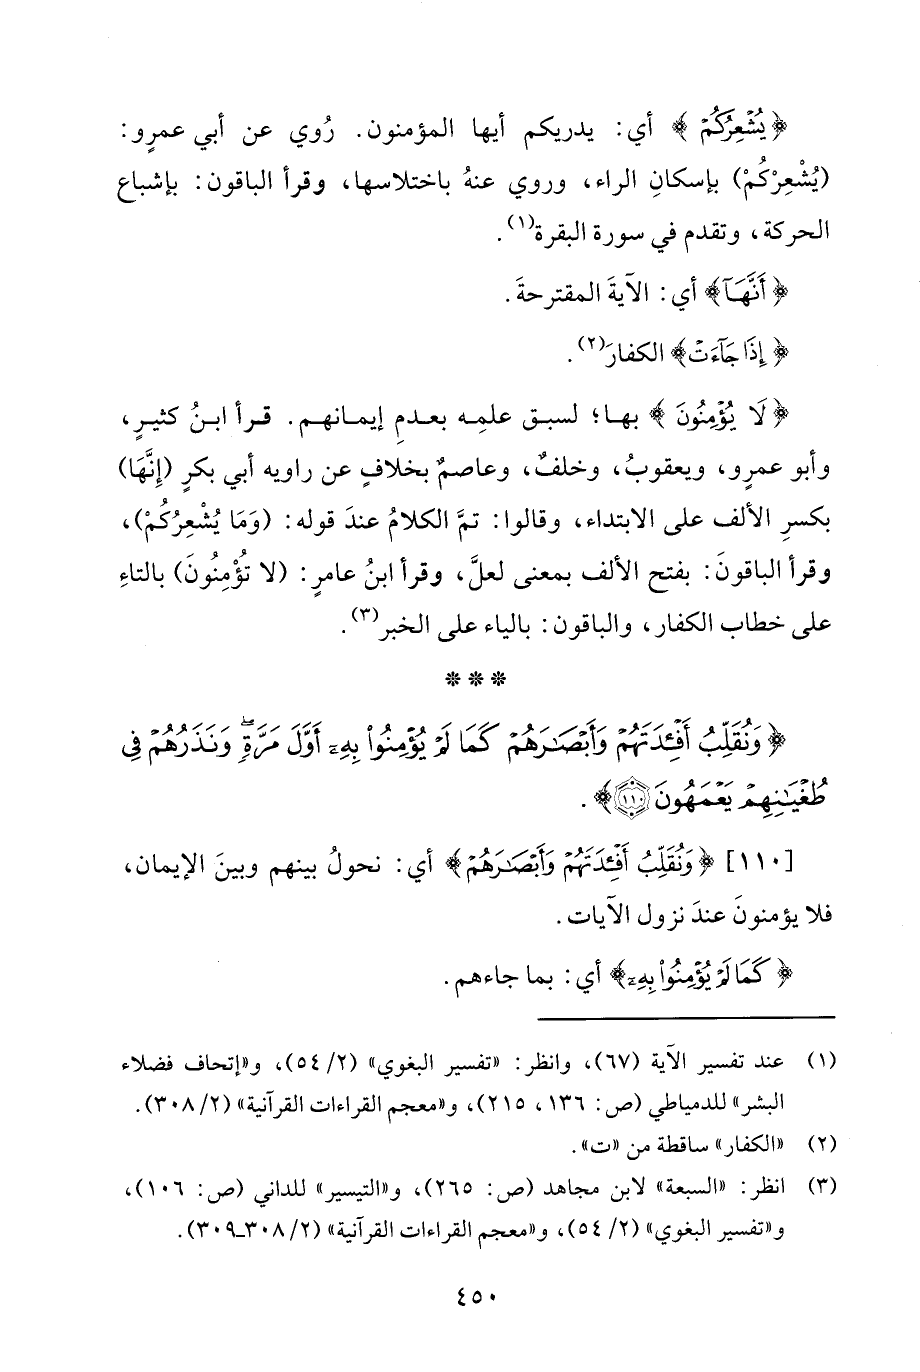 ﴿يُشْعِرُكُمْ﴾ أي: يدريكم أيها المؤمنون. رُوي عن أبي عمرٍو:
(يُشْعِرْكُمْ) بإسكانِ الراء، وروي عنهُ باختلاسها، وقرأ الباقون: بإشباع
الحركة، وتقدم في سورة البقرة(١).
﴿أَنَّهَآ﴾ أي: الآيةَ المقترحةَ.
﴿إِذَا جَآءَتْ﴾ الكفارَ(٢).
﴿لَا يُؤْمِنُونَ﴾ بها؛ لسبق علمِه بعدمِ إيمانهم. قرأ ابنُ كثيرٍ،
وأبو عمرٍو، ويعقوبُ، وخلفٌ، وعاصمٌ بخلافٍ عن راويه أبي بكرٍ (إِنَّهَا)
بكسرِ الألف على الابتداء، وقالوا: تمَّ الكلامُ عندَ قوله: (وَمَا يُشْعِرُكُمْ)،
وقرأ الباقونَ: بفتح الألف بمعنى لعلَّ، وقرأ ابنُ عامرٍ: (لا تُؤْمِنُونَ) بالتاءِ
على خطاب الكفار، والباقون: بالياء على الخبر(٣).
***
﴿وَنُقَلِّبُ أَفْـِٔدَتَهُمْ وَأَبْصَـٰرَهُمْ كَمَا لَمْ يُؤْمِنُوا۟ بِهِۦٓ أَوَّلَ مَرَّةٍۢ وَنَذَرُهُمْ فِى
طُغْيَـٰنِهِمْ يَعْمَهُونَ ١١٠﴾.
[١١٠] ﴿وَنُقَلِّبُ أَفْـِٔدَتَهُمْ وَأَبْصَـٰرَهُمْ﴾ أي: نحولُ بينهم وبينَ الإيمان،
فلا يؤمنونَ عندَ نزول الآيات.
﴿كَمَا لَمْ يُؤْمِنُوا۟ بِهِۦٓ﴾ أي: بما جاءهم.
(١) عند تفسير الآية (٦٧)، وانظر: «تفسير البغوي» (٢/ ٥٤)، و«إتحاف فضلاء
البشر» للدمياطي (ص: ١٣٦، ٢١٥)، و«معجم القراءات القرآنية» (٢/ ٣٠٨).
(٢) «الكفار» ساقطة من «ت».
(٣) انظر: «السبعة» لابن مجاهد (ص: ٢٦٥)، و«التيسير» للداني (ص: ١٠٦)،
و«تفسير البغوي» (٢/ ٥٤)، و«معجم القراءات القرآنية» (٢/ ٣٠٨ـ٣٠٩).
٤٥٠